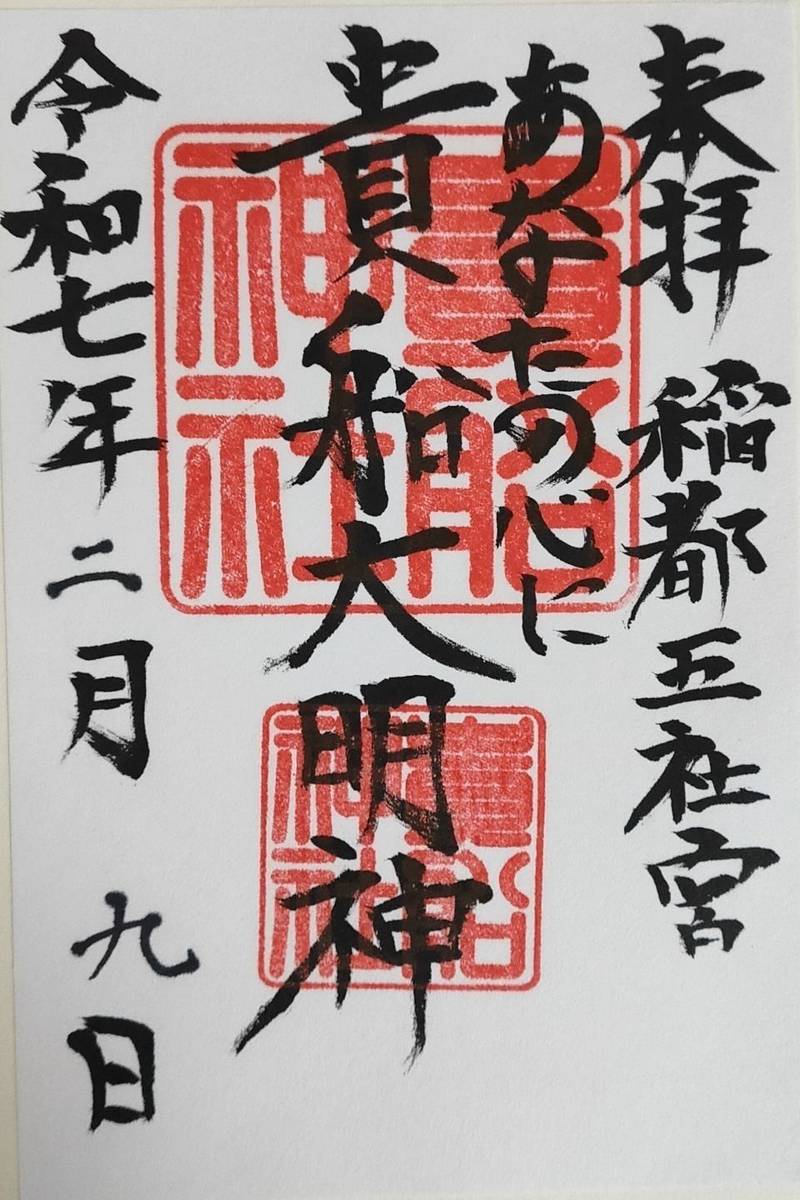 奉拝 稲都五社宮
あなたの心に
貴船大明神
令和七年二月 九日
貴船神社
貴船神社